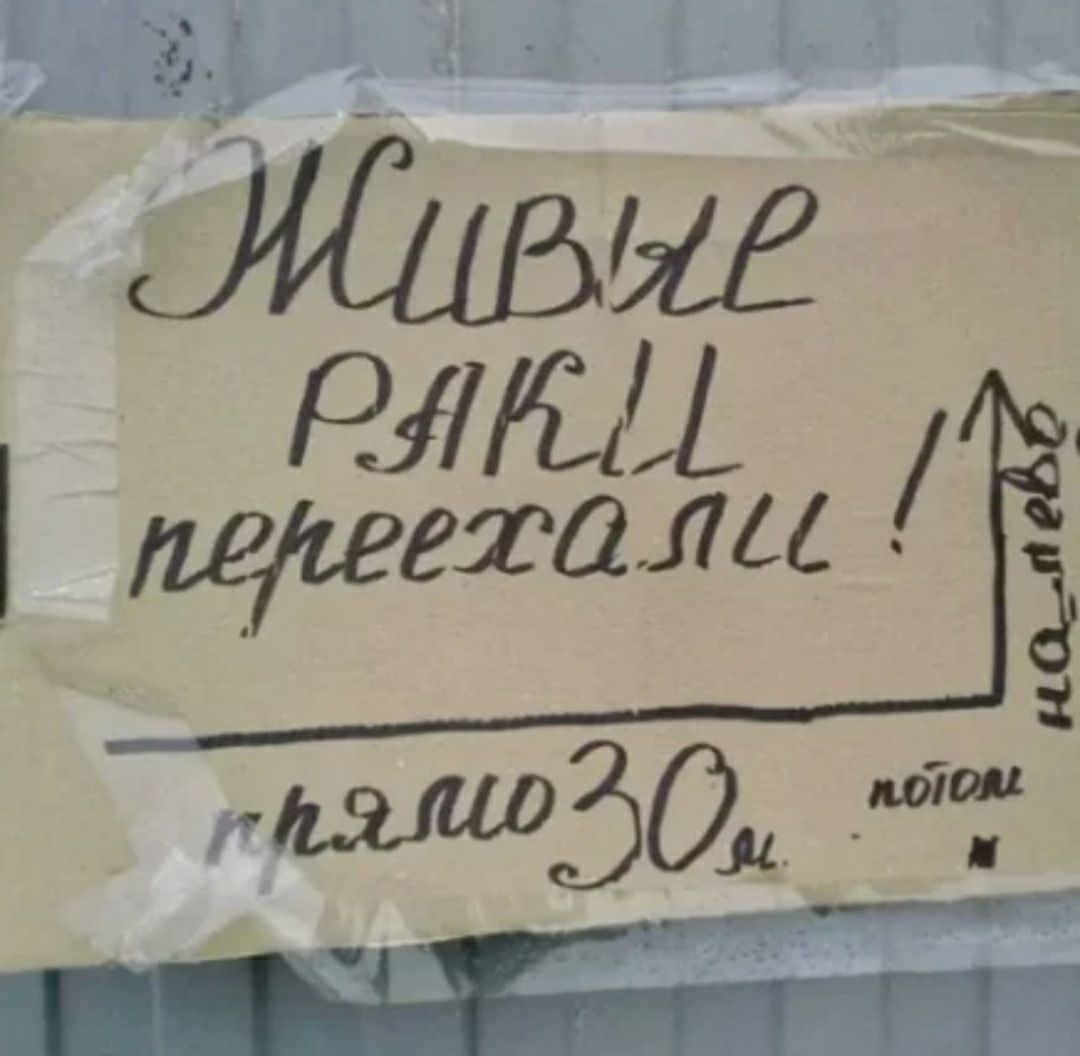 Живые
РАКИ
переехали!
прямо 30 м.
потом
налево